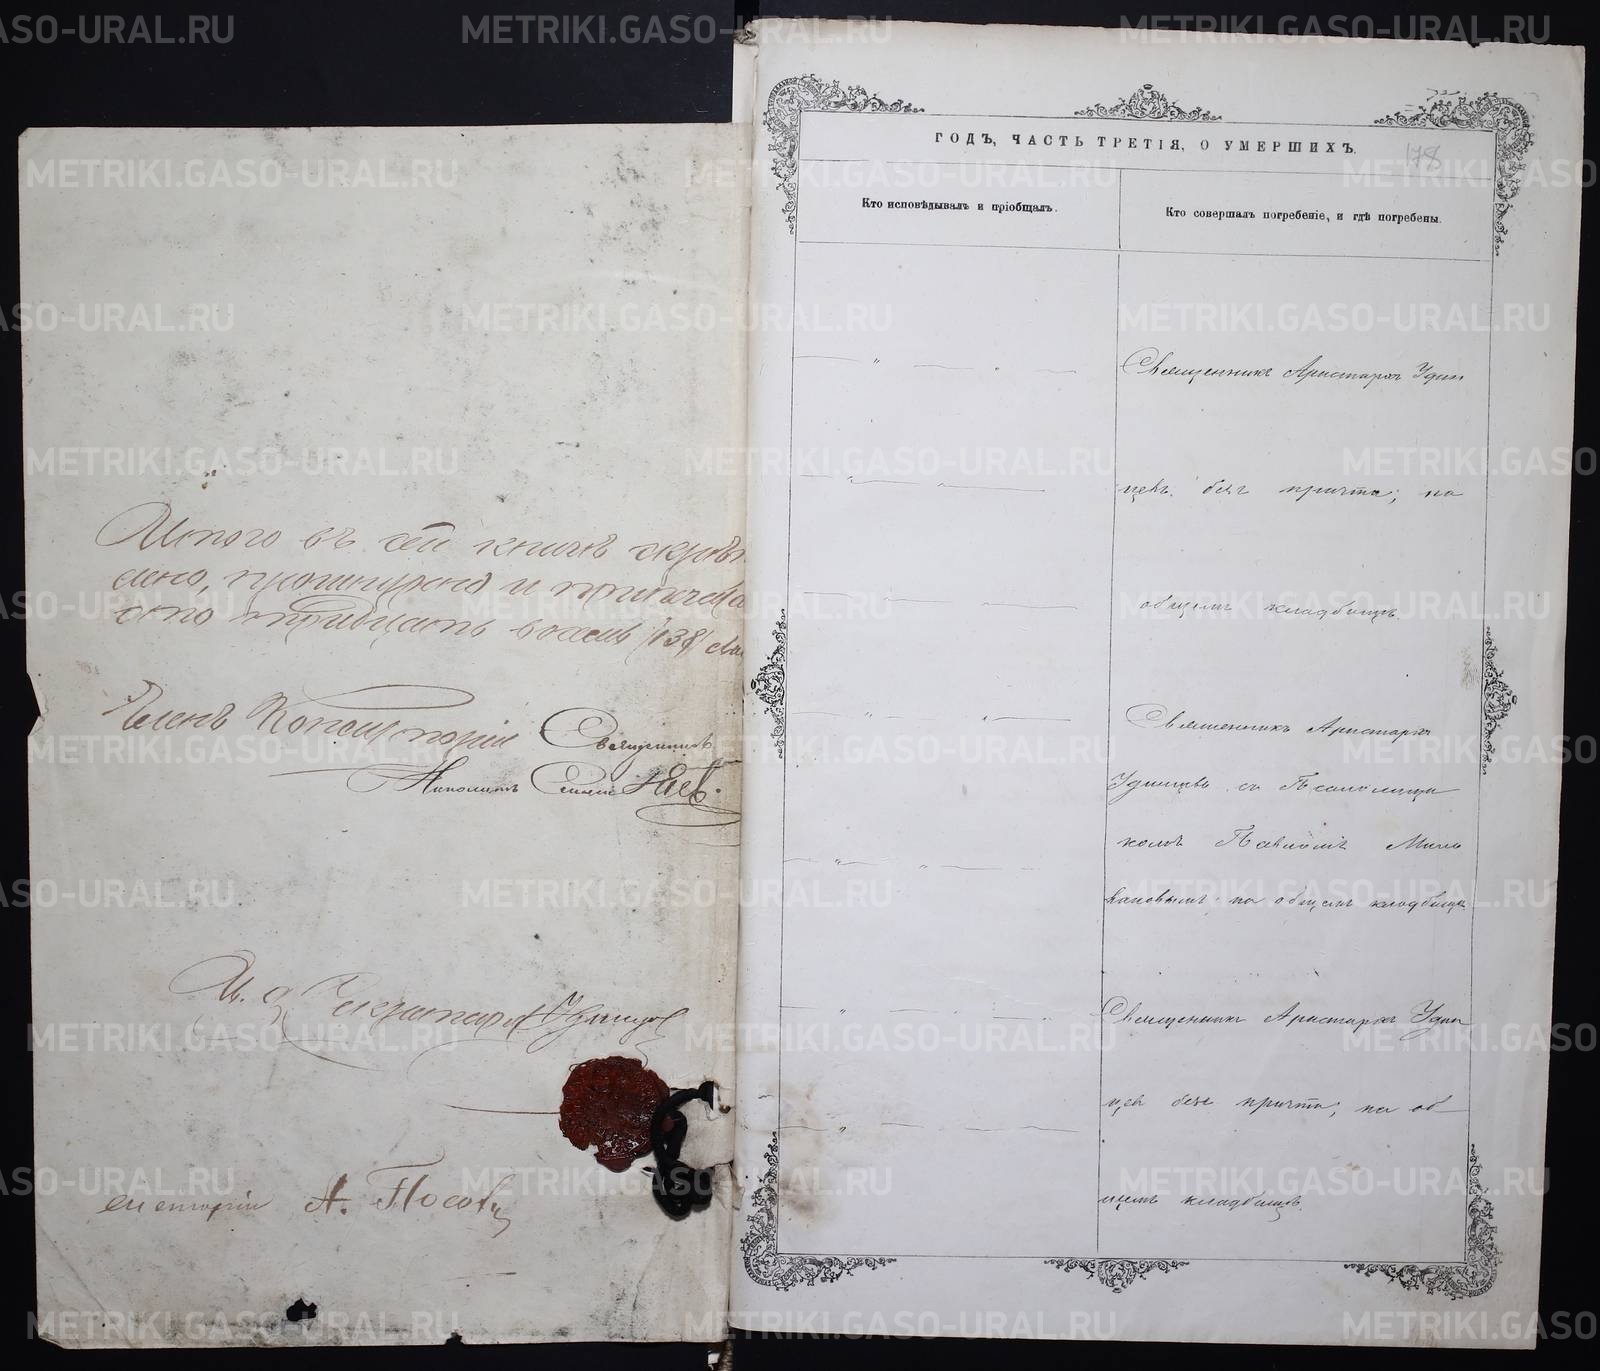 Итого въ сей книгѣ скрѣп
лено, прошнуровано и припечата
сто тридцать восемь /138/ лис
Членъ Консисторіи Священникъ
И. д. Секретаря Удинцов
А. Носов
ГОДЪ, ЧАСТЬ ТРЕТІЯ, О УМЕРШИХЪ.
178
Кто исповѣдывалъ и пріобщалъ.
Кто совершалъ погребеніе, и гдѣ погребены.
Священникъ Аристархъ Удин
цевъ безъ причта; на
общемъ кладбищѣ.
Священникъ Аристархъ
Удинцевъ съ Псаломщи
комъ Павломъ
на общемъ кладбищѣ
Священникъ Аристархъ Удин
цевъ безъ причта; на об
щемъ кладбищѣ.
METRIKI.GASO-URAL.RU